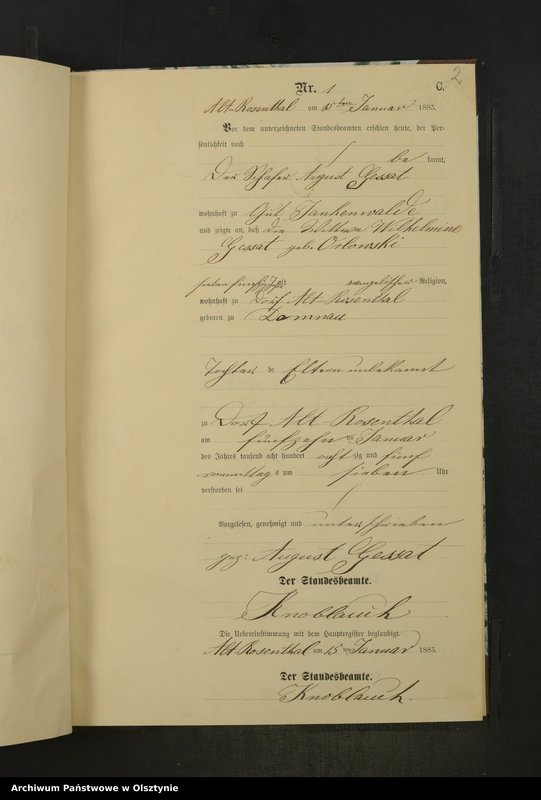 2
Nr. 1 C.
Alt-Rosenthal am 15ten Januar 1885.
Vor dem unterzeichneten Standesbeamten erschien heute, der Per-
sönlichkeit nach
be kannt,
Der Schäfer August Gessat
wohnhaft zu Gut Jankenwalde
und zeigte an, daß die Wittwe Wilhelmine
Gessat geb. Orlowski
alt evangelischer Religion,
wohnhaft zu Dorf Alt Rosenthal
geboren zu Domnau
Tochter der Eltern unbekannt
zu Dorf Alt-Rosenthal
am fünfzehnten Januar
des Jahres tausend acht hundert acht zig und fünf
vormittags um sieben Uhr
verstorben sei
Vorgelesen, genehmigt und unterschrieben
gez: August Gessat
Der Standesbeamte.
Knoblauch
Die Uebereinstimmung mit dem Hauptregister beglaubigt.
Alt Rosenthal am 15ten Januar 1885.
Der Standesbeamte.
Knoblauch.
Archiwum Państwowe w Olsztynie